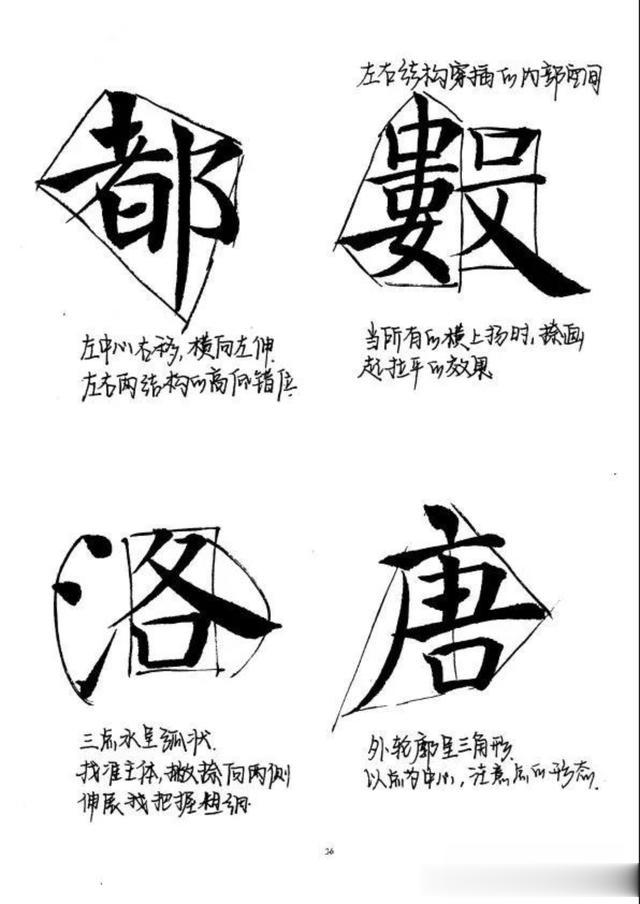 都
左中心右移，横向左伸.
左右两结构的高低错位
左右结构穿插的内部空间
數
当所有的横上扬时，捺画
起拉平的效果
洛
三点水呈弧状.
找准主体，撇捺向两侧
伸展找把握
唐
外轮廓呈三角形.
以点为中心，注意点的形态.
26